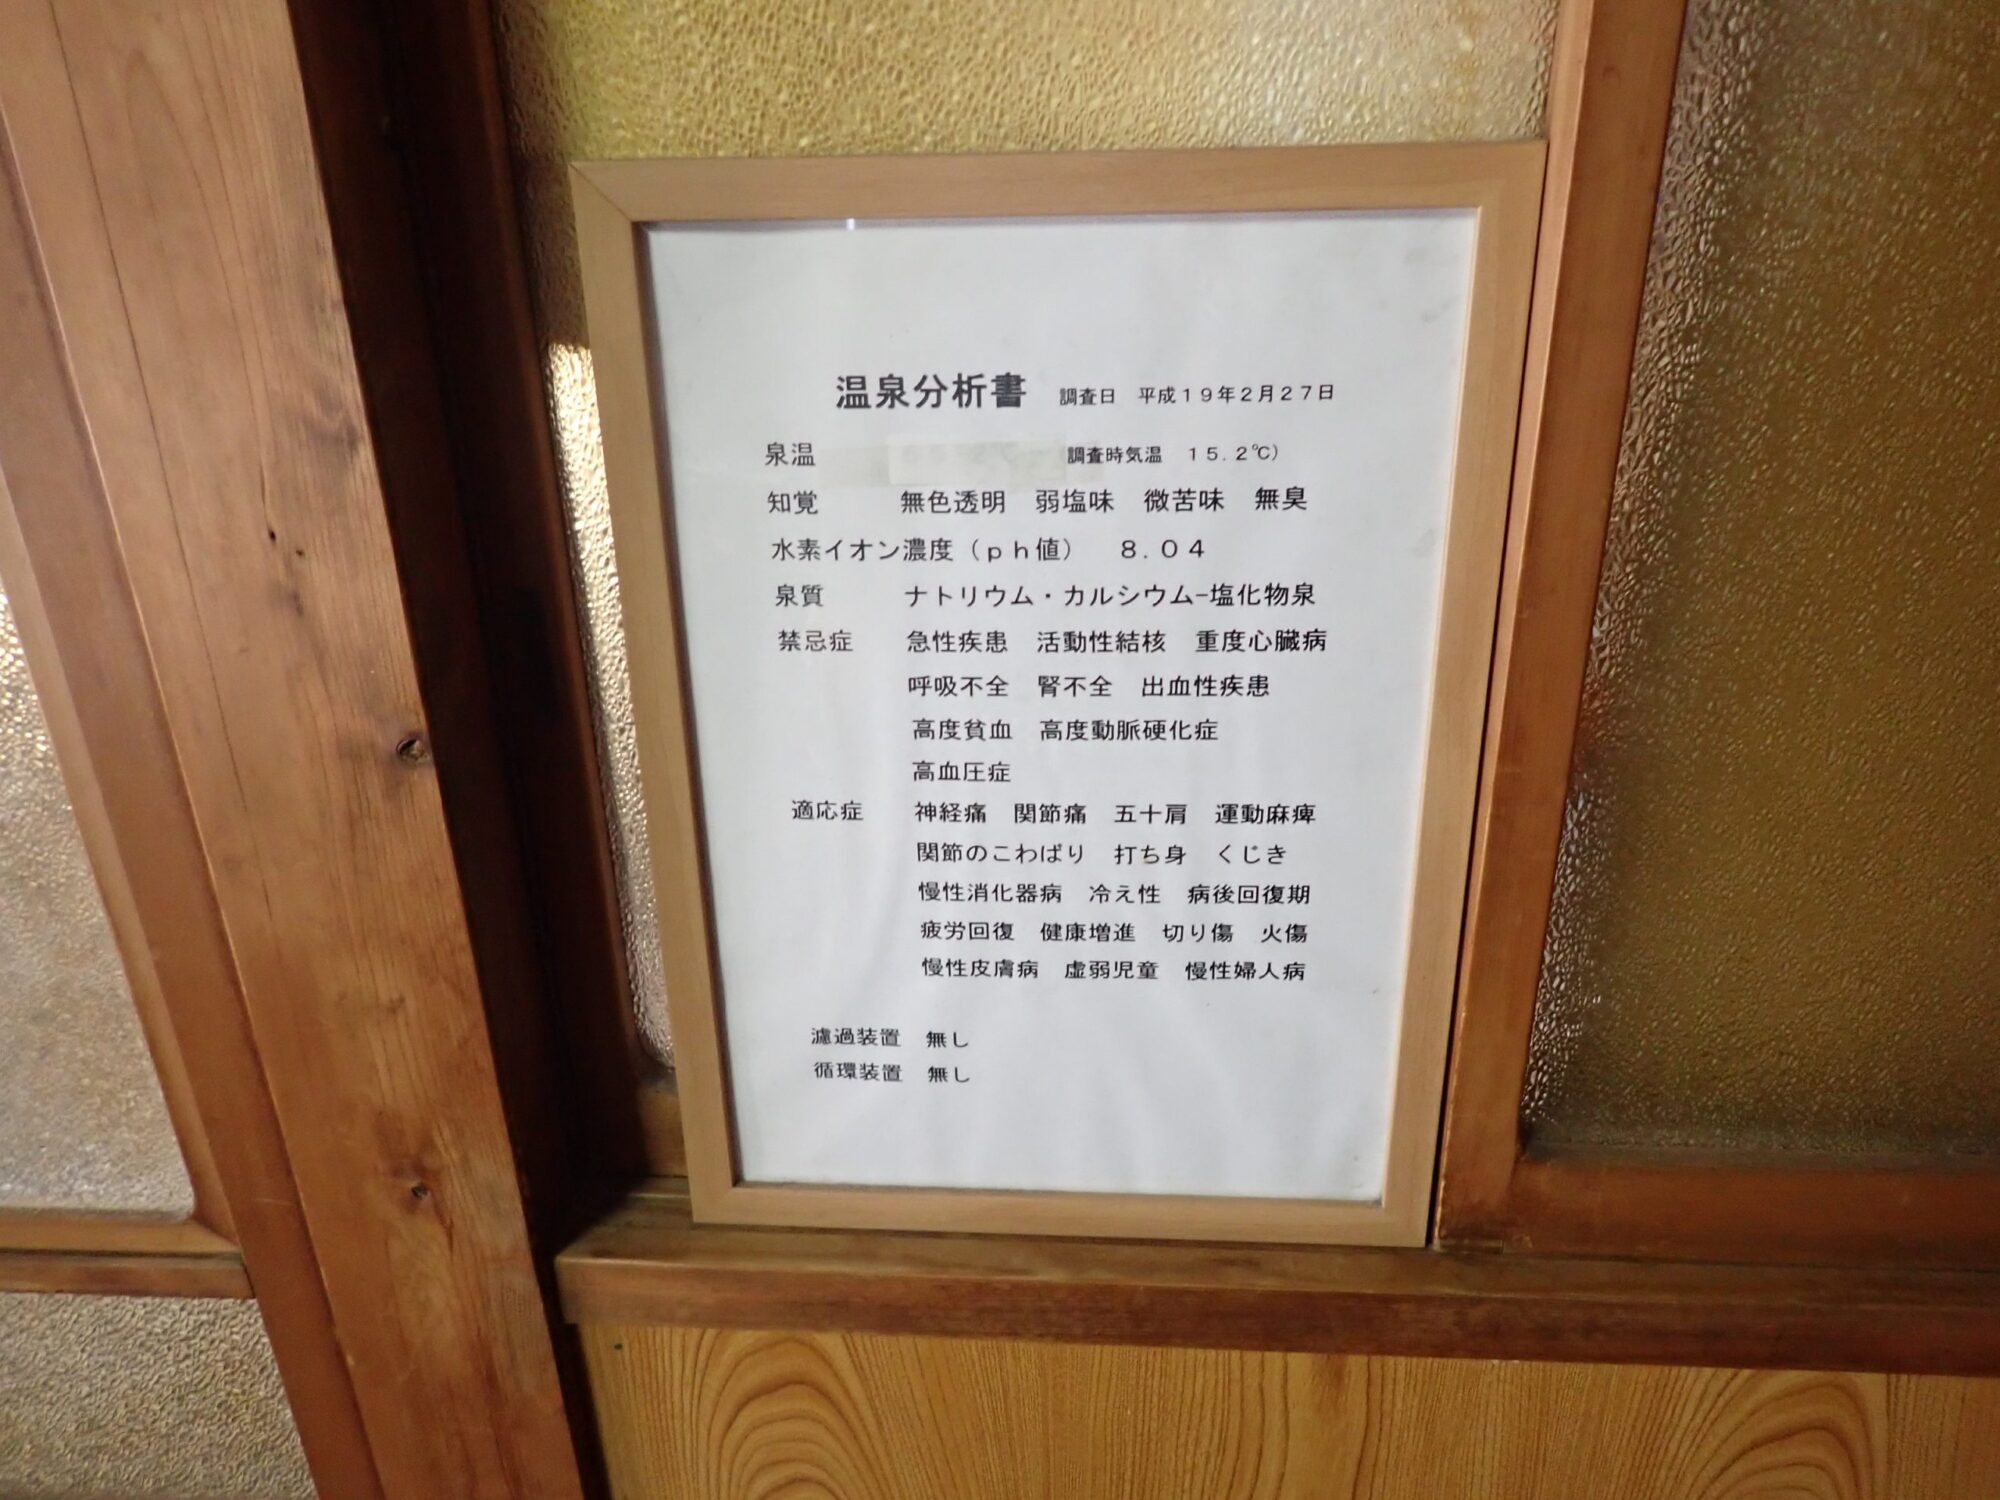 温泉分析書　調査日　平成１９年２月２７日
泉温　（調査時気温　１５．２℃）
知覚　無色透明　弱塩味　微苦味　無臭
水素イオン濃度（ｐｈ値）　８．０４
泉質　ナトリウム・カルシウム−塩化物泉
禁忌症　急性疾患　活動性結核　重度心臓病
呼吸不全　腎不全　出血性疾患
高度貧血　高度動脈硬化症
高血圧症
適応症　神経痛　関節痛　五十肩　運動麻痺
関節のこわばり　打ち身　くじき
慢性消化器病　冷え性　病後回復期
疲労回復　健康増進　切り傷　火傷
慢性皮膚病　虚弱児童　慢性婦人病
濾過装置　無し
循環装置　無し